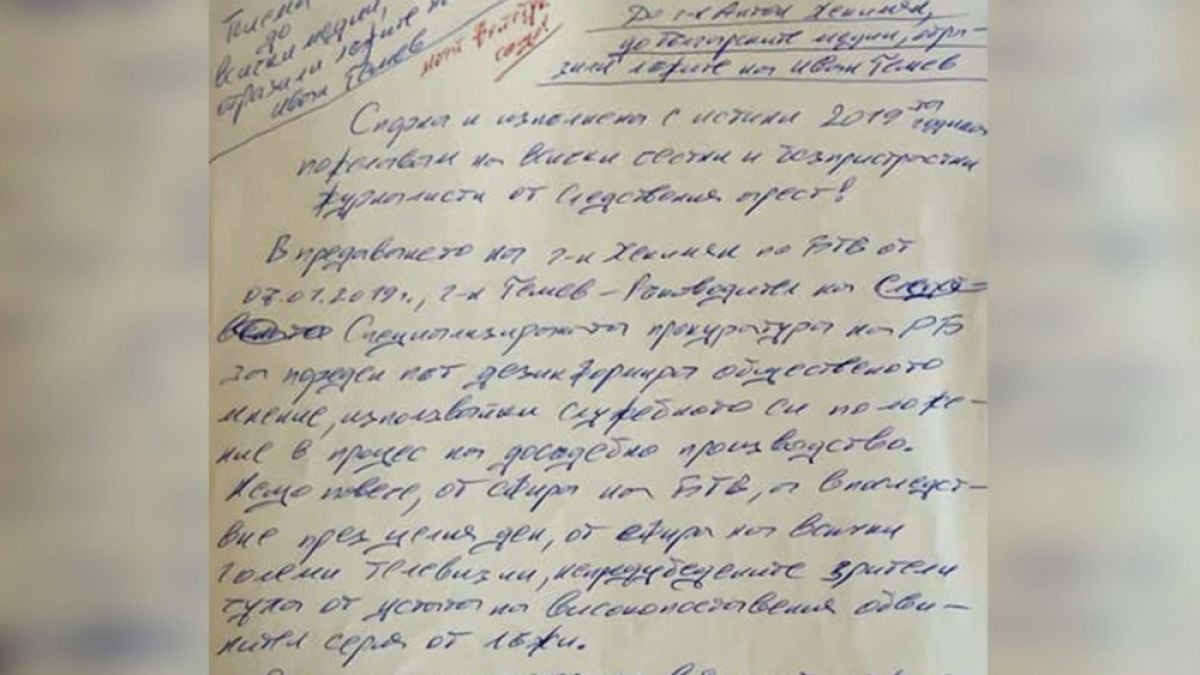 до
всички медии,
отразили лъжите на
Иван Гешев
моят Фейсбук
До г-н Антон Хекимян,
до българските медии, отра-
зили лъжите на Иван Гешев
Спорна и изпълнена с истини 2019та година
пожелавам на всички честни и безпристрастни
журналисти от Следствения арест!
В предаването на г-н Хекимян по БТВ от
07.01.2019г., г-н Гешев – Ръководител на
Специализираната прокуратура на РБ
за пореден път дезинформира общественото
мнение, използвайки служебното си положе-
ние в процес на досъдебно производство.
Нещо повече, от ефира на БТВ, а впоследст-
вие през целия ден, от ефира на всички
големи телевизии, непредубедените зрители
чуха от устата на високопоставения обви-
нител серия от лъжи.